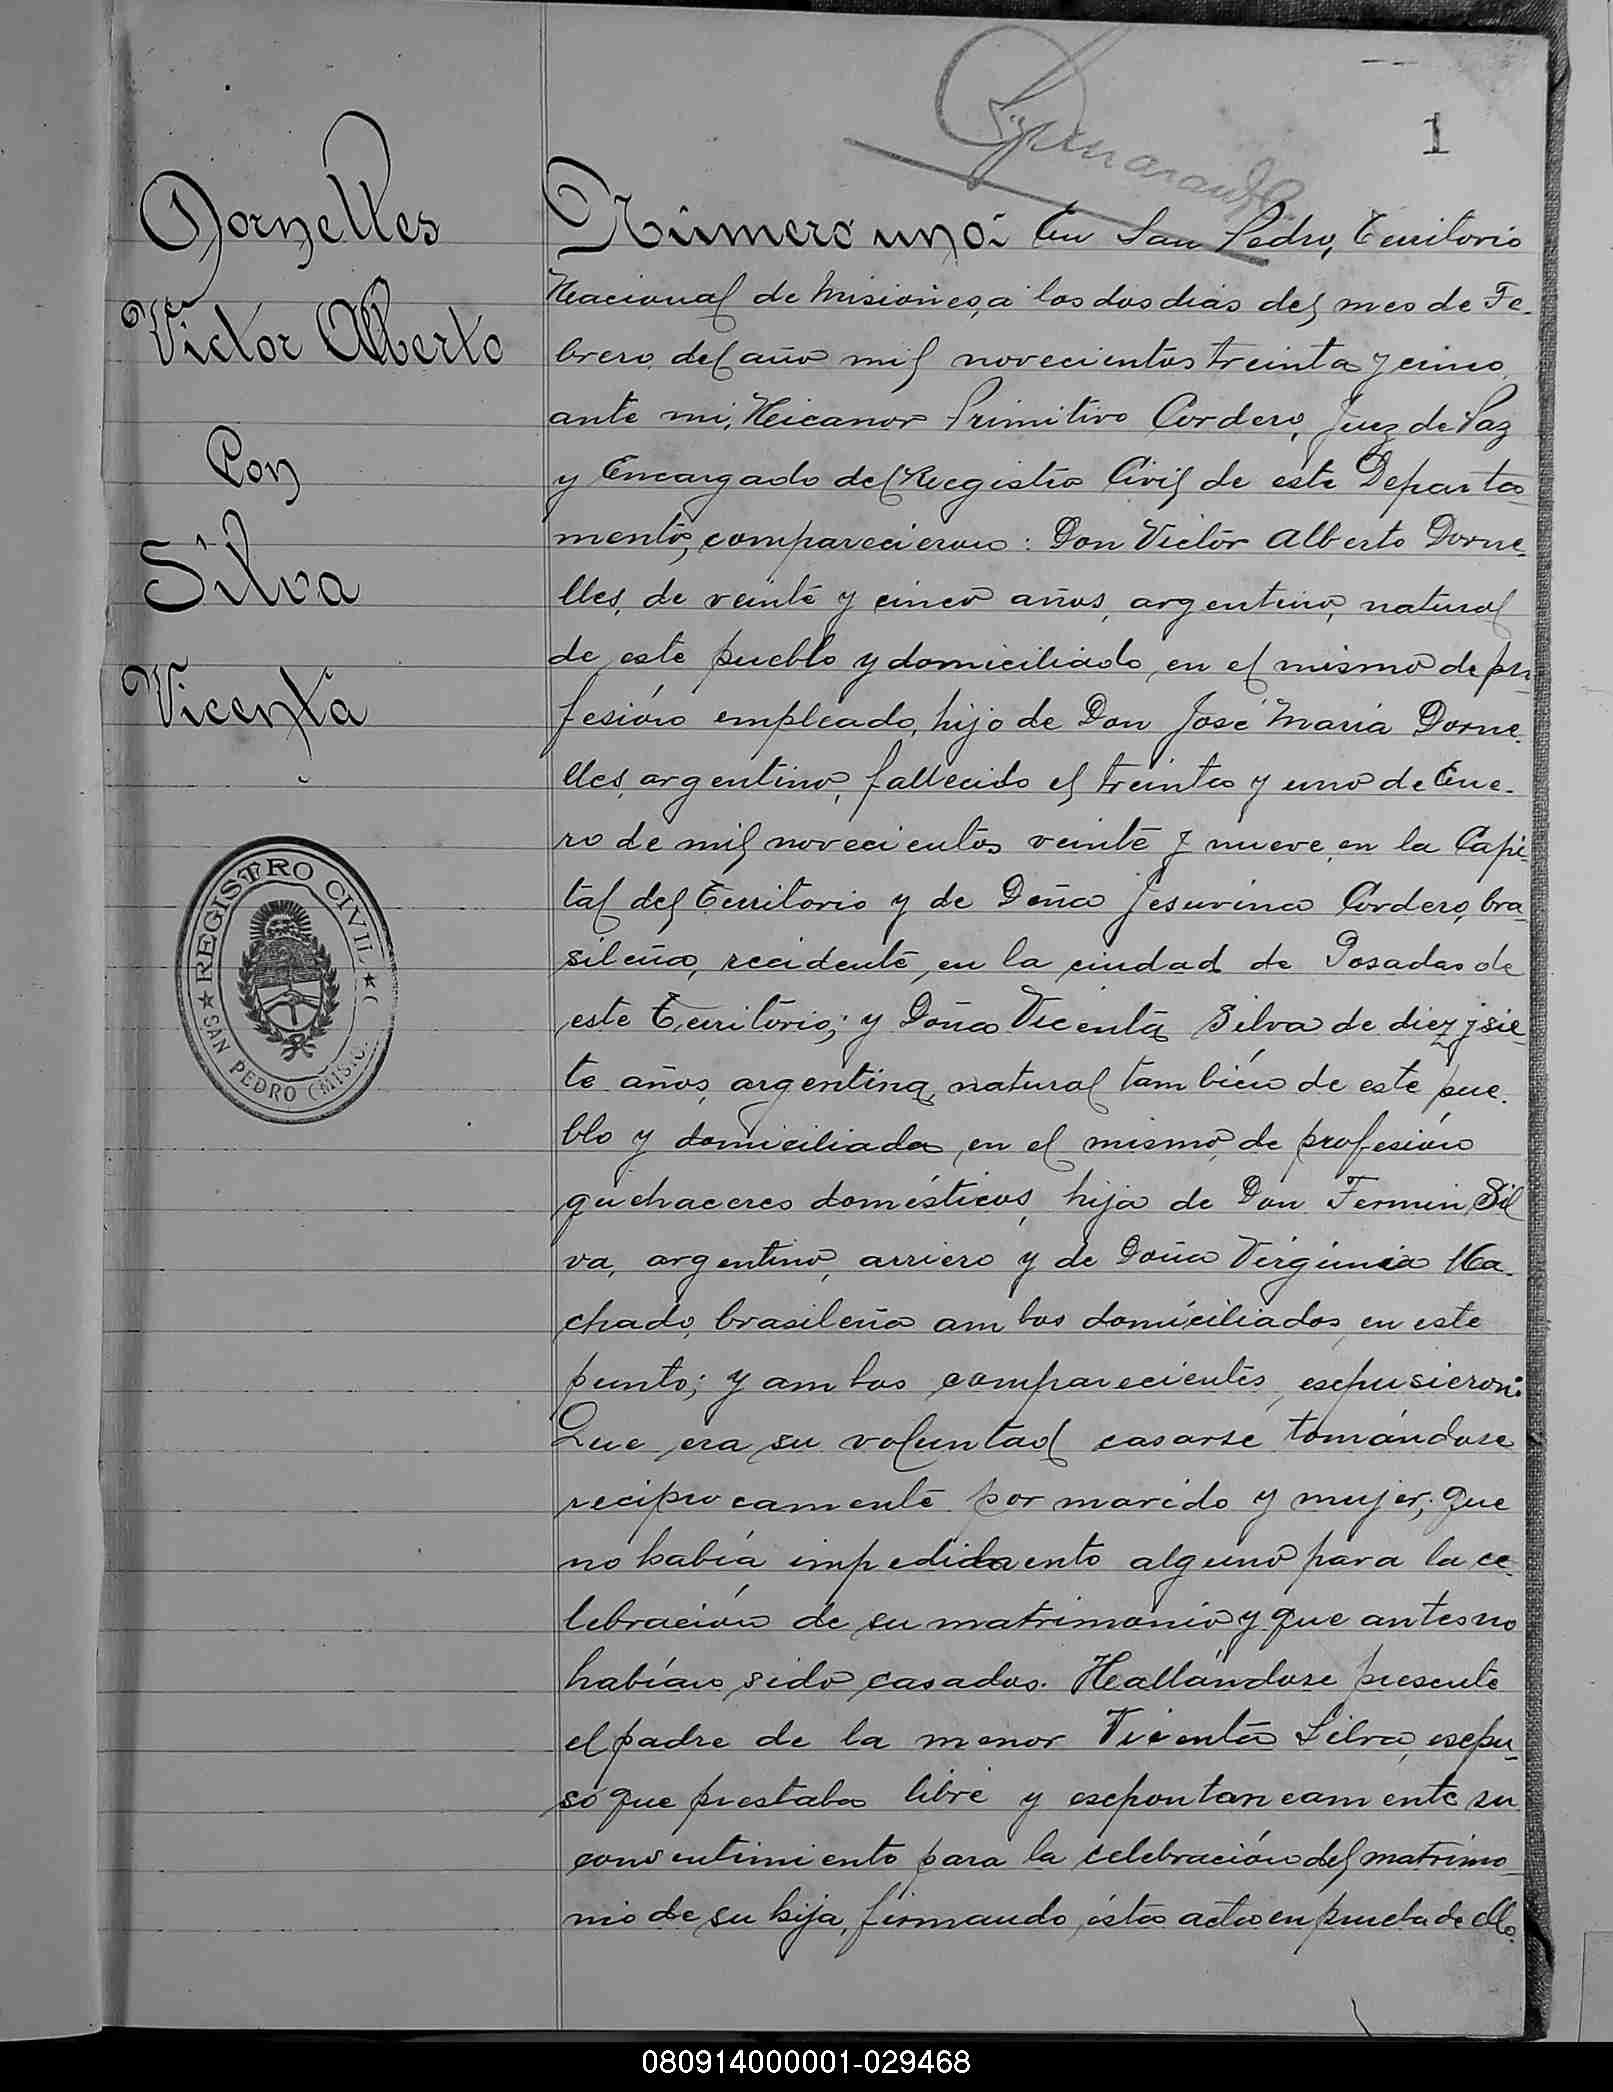 1
Dornelles
Victor Alberto
Con
Silva
Vicenta
REGISTRO CIVIL
SAN PEDRO (MISIC.
Número uno: En San Pedro, Territorio
Nacional de Misiones, a los dos dias del mes de Fe-
brero del año mil novecientos treinta y cinco,
ante mi, Nicanor Primitivo Cordero, Juez de Paz
y Encargado del Registro Civil de este Departa-
mento, comparecieron: Don Victor Alberto Dorne-
lles, de veinte y cinco años, argentino, natural
de este pueblo y domiciliado en el mismo de pro-
fesión empleado, hijo de Don José María Dorne-
lles, argentino, fallecido el treinta y uno de Ene-
ro de mil novecientos veinte y nueve, en la Capi-
tal del Territorio y de Doña Jesuvina Cordero, bra-
sileña, recidente, en la ciudad de Posadas de
este Territorio; y Doña Vicenta Silva de diez y sie-
te años, argentina, natural también de este pue-
blo y domiciliada en el mismo, de profesión
quehaceres domésticos, hija de Don Fermin Sil
va, argentino, arriero y de Doña Virginia Ma-
chado, brasileña ambos domiciliados en este
punto; y ambos comparecientes, escpusieron:
Que era su voluntad casarse, tomándose
reciprocamente por marido y mujer; que
no había impedimento alguno para la ce-
lebración de su matrimonio y que antes no
habían sido casados. Hallándose presente
el padre de la menor Vicenta Silva, escpu-
só que prestaba libre y escpontaneamente su
consentimiento para la celebración del matrimo-
nio de su hija, firmando ésta acta en prueba de ello.
080914000001-029468